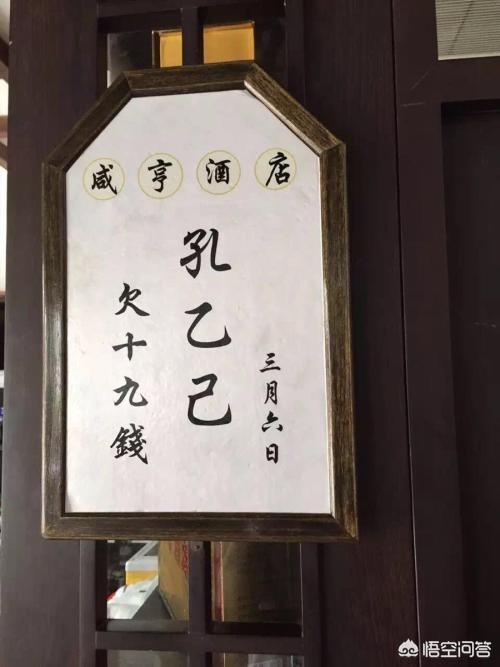 咸亨酒店
三月六日
孔乙己
欠十九錢
悟空问答